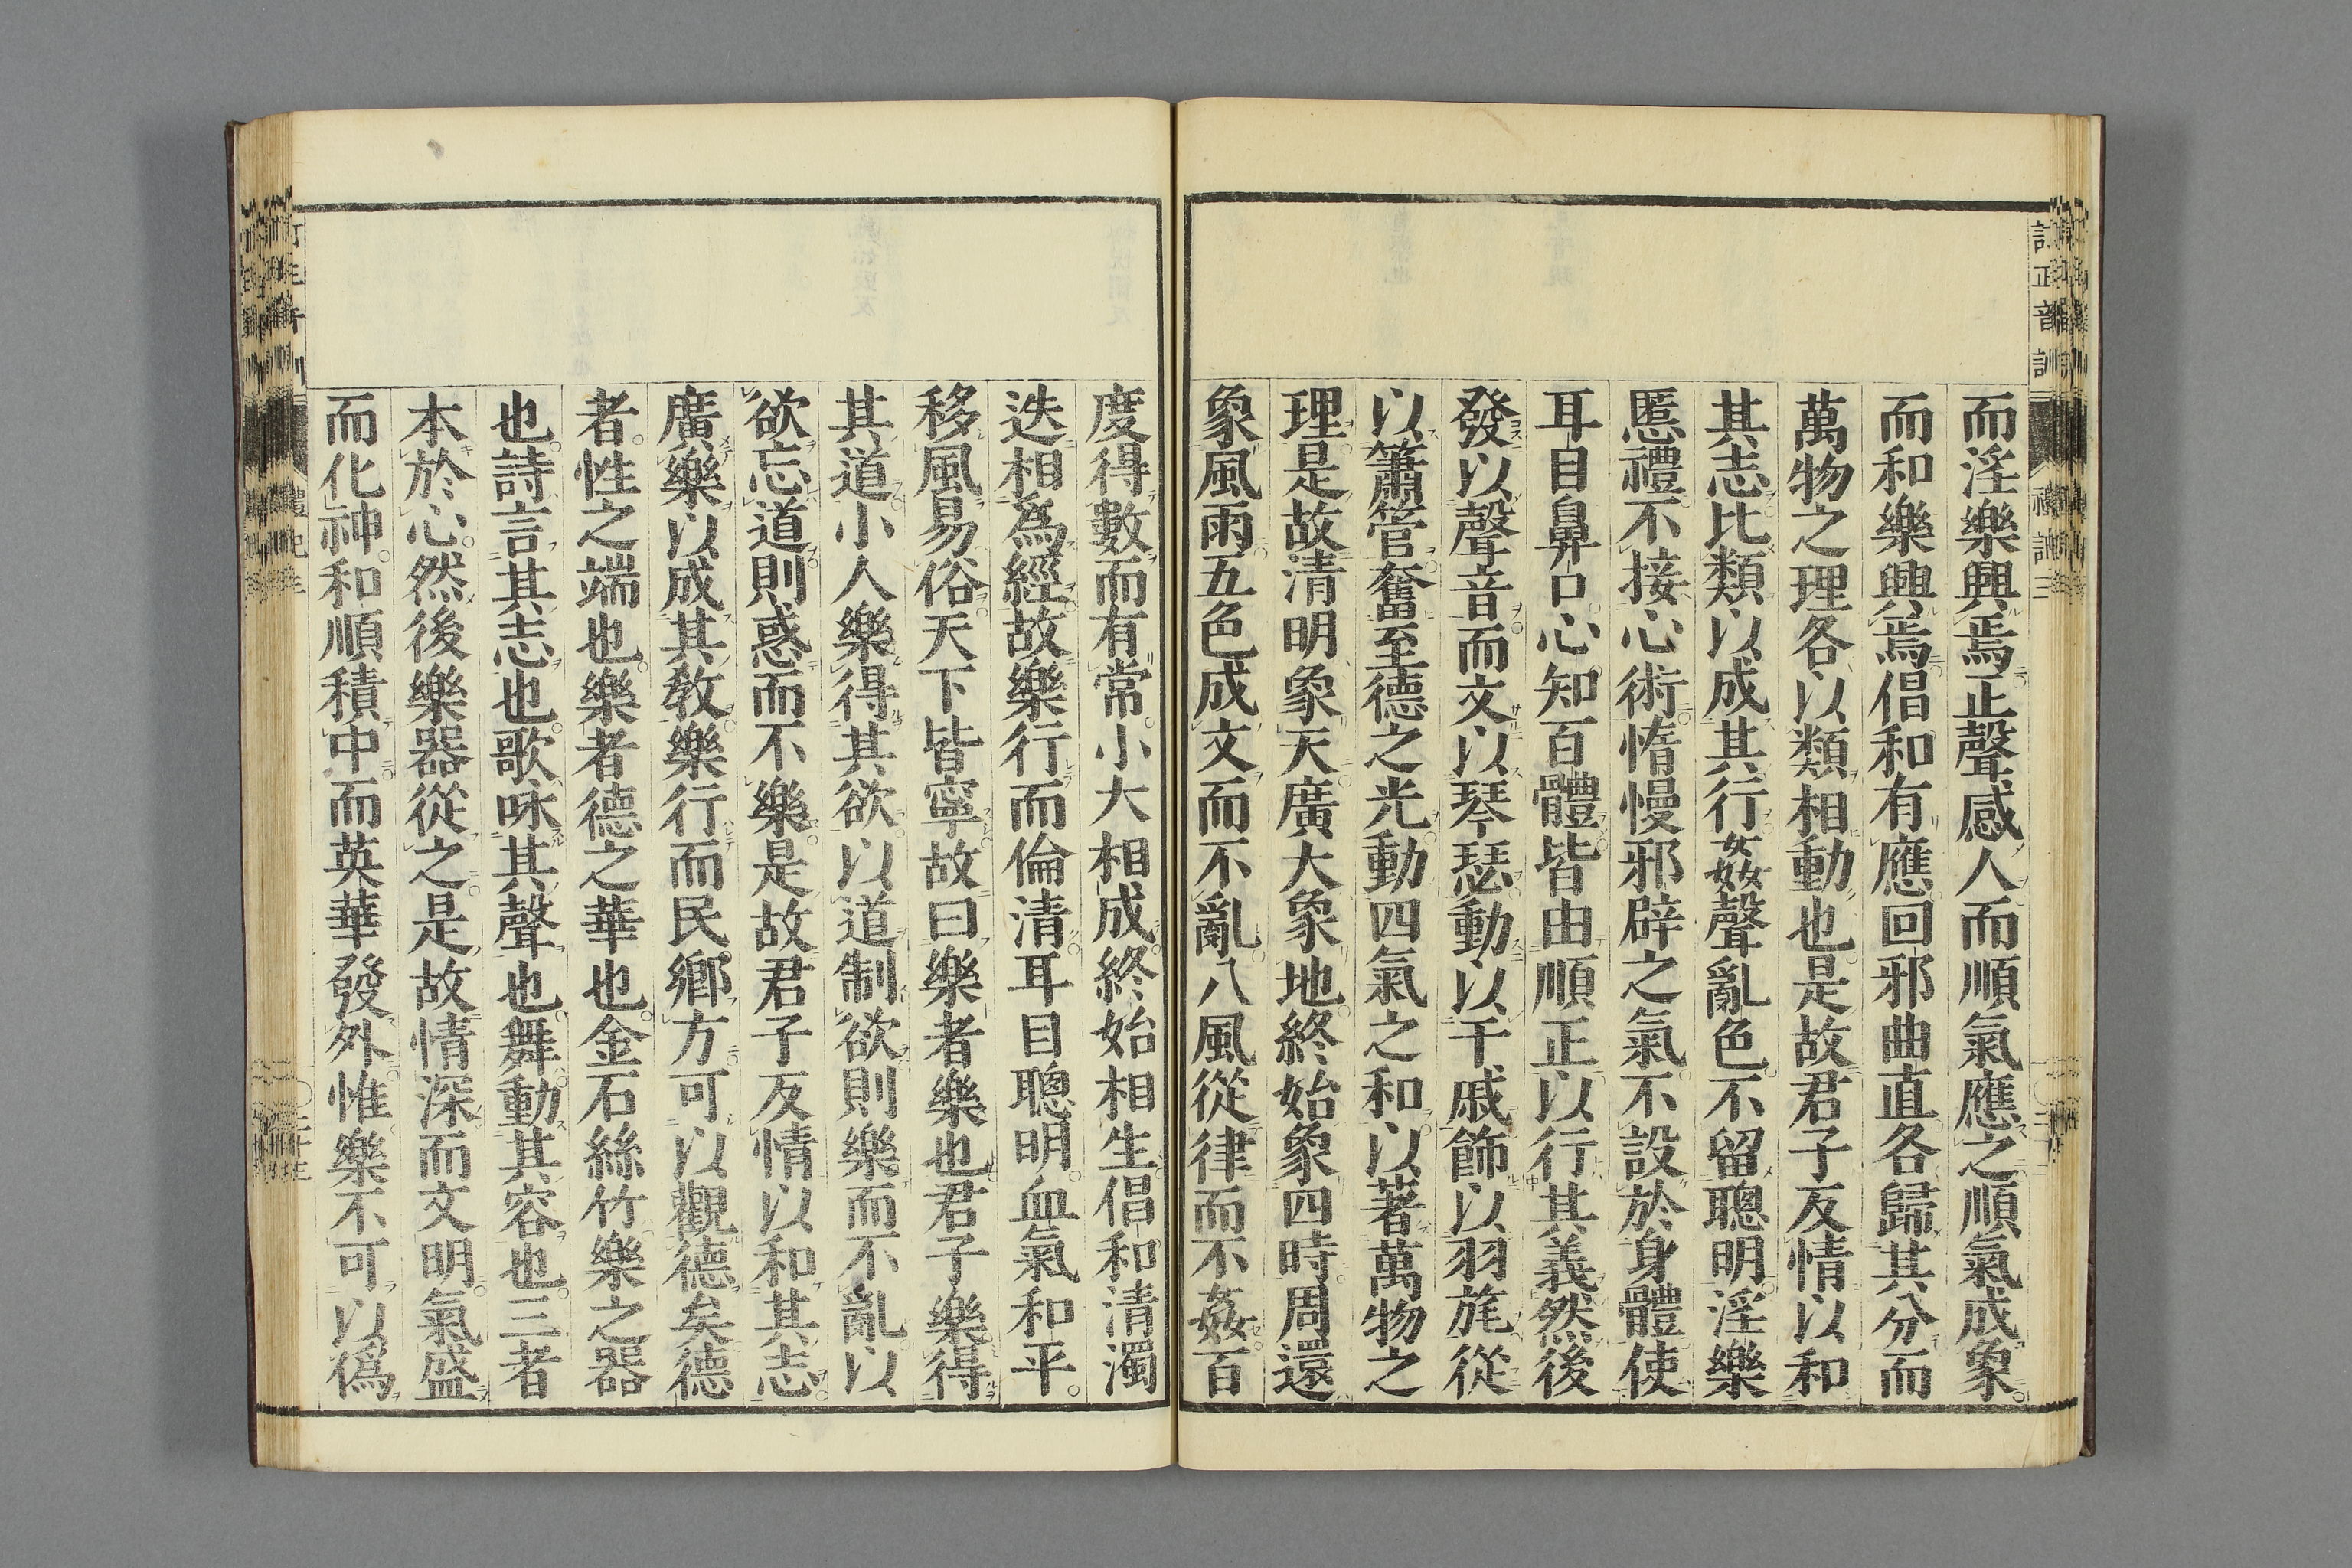 而淫樂興焉正聲感人而順氣應之順氣成象
而和樂興焉倡和有應回邪曲直各歸其分而
萬物之理各以類相動也是故君子反情以和
其志比類以成其行姦聲亂色不留聰明淫樂
慝禮不接心術惰慢邪辟之氣不設於身體使
耳目鼻口心知百體皆由順正以行其義然後
發以聲音而文以琴瑟動以干戚飾以羽旄從
以簫管奮至德之光動四氣之和以著萬物之
理是故清明象天廣大象地終始象四時周還
象風雨五色成文而不亂八風從律而不姦百
度得數而有常小大相成終始相生倡和清濁
迭相爲經故樂行而倫清耳目聰明血氣和平
移風易俗天下皆寧故曰樂者樂也君子樂得
其道小人樂得其欲以道制欲則樂而不亂以
欲忘道則惑而不樂是故君子反情以和其志
廣樂以成其敎樂行而民鄉方可以觀德矣德
者性之端也樂者德之華也金石絲竹樂之器
也詩言其志也歌咏其聲也舞動其容也三者
本於心然後樂器從之是故情深而文明氣盛
而化神和順積中而英華發外惟樂不可以僞